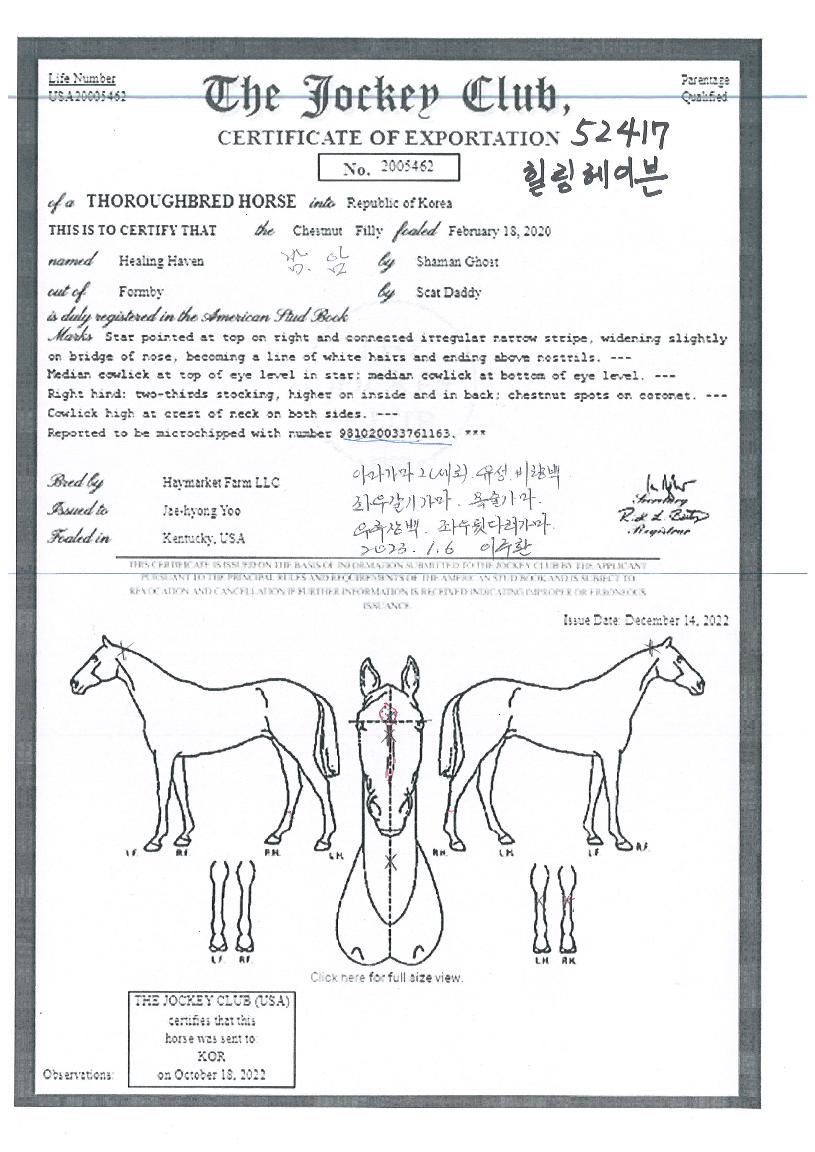 Life Number
USA20005462
Parentage
Qualified
The Jockey Club,
CERTIFICATE OF EXPORTATION
52417
No. 2005462
힐링헤이븐
of a THOROUGHBRED HORSE into Republic of Korea
THIS IS TO CERTIFY THAT the Chestnut Filly foaled February 18, 2020
named Healing Haven by Shaman Ghost
out of Formby by Scat Daddy
is duly registered in the American Stud Book
Marks Star pointed at top on right and connected irregular narrow stripe, widening slightly
on bridge of nose, becoming a line of white hairs and ending above nostrils. ---
Median cowlick at top of eye level in star; median cowlick at bottom of eye level. ---
Right hind: two-thirds stocking, higher on inside and in back; chestnut spots on coronet. ---
Cowlick high at crest of neck on both sides. ---
Reported to be microchipped with number 981020033761163. ***
Bred by Haymarket Farm LLC
이마가마2(세로). 유성. 비량백
Issued to Jae-hyong Yoo
좌우갈기가마. 목술가마.
Foaled in Kentucky, USA
좌우뒷다리가마.
2023. 1. 6 이주환
Secretary
Registrar
THIS CERTIFICATE IS ISSUED ON THE BASIS OF INFORMATION SUBMITTED TO THE JOCKEY CLUB BY THE APPLICANT
PURSUANT TO THE PRINCIPAL RULES AND REQUIREMENTS OF THE AMERICAN STUD BOOK AND IS SUBJECT TO
REVOCATION AND CANCELLATION IF FURTHER INFORMATION IS RECEIVED INDICATING IMPROPER OR ERRONEOUS
ISSUANCE
Issue Date: December 14, 2022
L.F. R.F. R.H. L.H. R.H. L.H. L.F. R.F.
L.F. R.F. L.H. R.H.
Click here for full size view.
THE JOCKEY CLUB (USA)
certifies that this
horse was sent to:
KOR
on October 18, 2022
Observations: